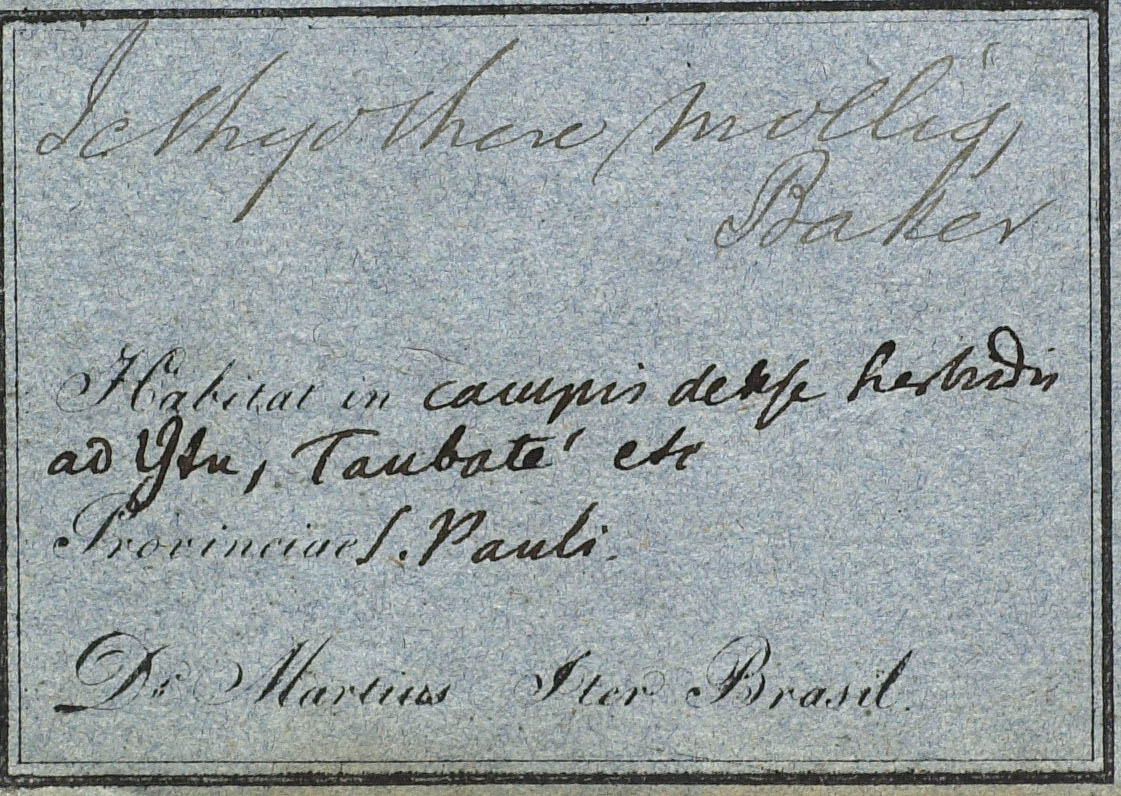 Icthyothere mollis,
Baker
Habitat in campis dense herbidis
ad Ytu, Taubaté etc
Provinciae S. Pauli.
Dr. Martius Iter Brasil.